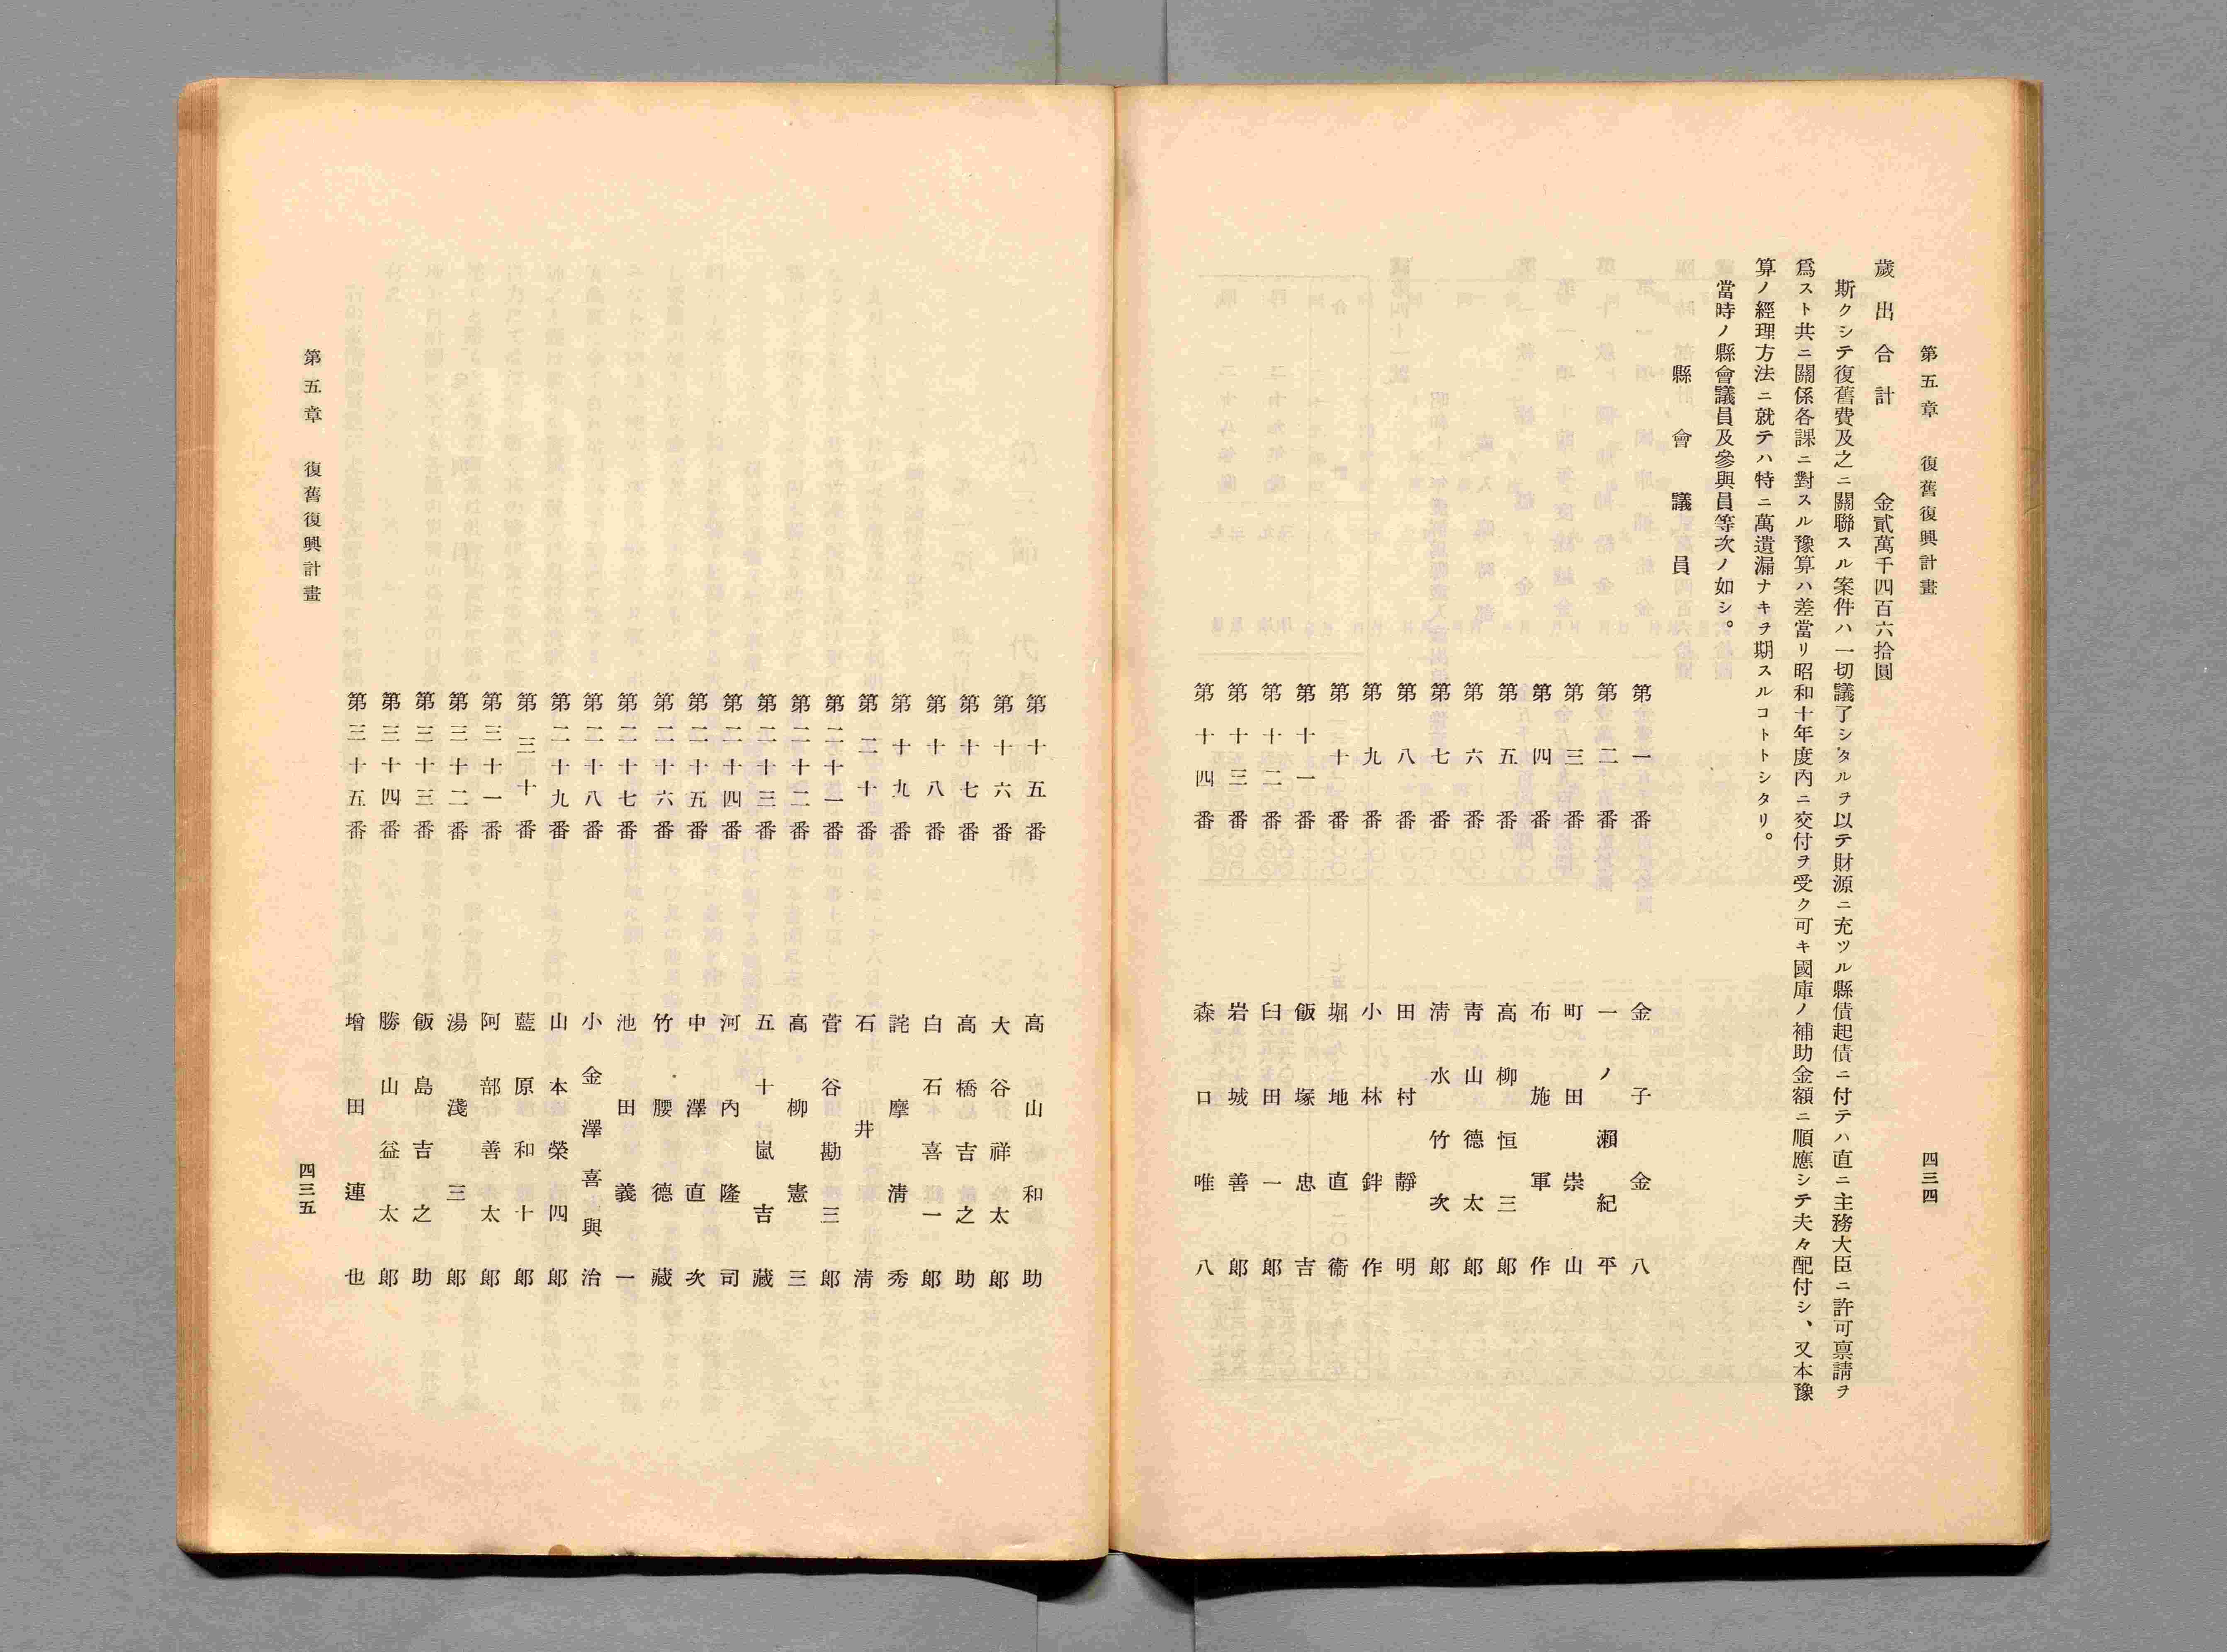 第五章　復舊復興計畫
四三四
歲出合計　金貳萬千四百六拾圓
斯クシテ復舊費及之ニ關聯スル案件ハ一切議了シタルヲ以テ財源ニ充ツル縣債起債ニ付テハ直ニ主務大臣ニ許可禀請ヲ
爲スト共ニ關係各課ニ對スル豫算ハ差當リ昭和十年度內ニ交付ヲ受ク可キ國庫ノ補助金額ニ順應シテ夫々配付シ、又本豫
算ノ經理方法ニ就テハ特ニ萬遺漏ナキヲ期スルコトトシタリ。
當時ノ縣會議員及參與員等次ノ如シ。
縣會議員
第一番　金子金八
第二番　一ノ瀨紀平
第三番　町田崇山
第四番　布施軍作
第五番　高柳恒三郞
第六番　靑山德太郞
第七番　淸水竹次郞
第八番　田村靜明
第九番　小林鉡作
第十番　堀地直衞
第十一番　飯塚忠吉
第十二番　臼田一郞
第十三番　岩城善郞
第十四番　森口唯八
第十五番　高山和助
第十六番　大谷祥太郞
第十七番　高橋吉之助
第十八番　白石喜一郞
第十九番　詫摩淸秀
第二十番　石井淸
第二十一番　菅谷勘三郞
第二十二番　高柳憲三
第二十三番　五十嵐吉藏
第二十四番　河內隆司
第二十五番　中澤直次
第二十六番　竹腰德藏
第二十七番　池田義一
第二十八番　小金澤喜與治
第二十九番　山本榮四郞
第三十番　藍原和十郞
第三十一番　阿部善太郞
第三十二番　湯淺三郞
第三十三番　飯島吉之助
第三十四番　勝山益太郞
第三十五番　增田連也
第五章　復舊復興計畫
四三五